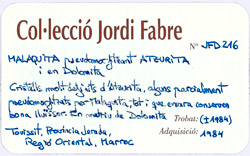 Col·lecció Jordi Fabre
Nº JFD216
MALAQUITA pseudomorfitzant ATZURITA
i en Dolomita
Cristalls molt soljats d'Atzurita, alguns parcialment
pseudomorfitzats per Malaquita, tot i que encara conserven
bona lluïssor. En matriu de Dolomita
Trobat: (±1984)
Touissit, Província Jerada, Adquisició: 1984
Regió Oriental, Marroc